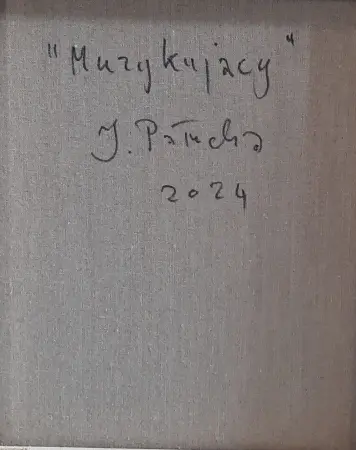 "Muzykujący"
J. Pałucha
2024